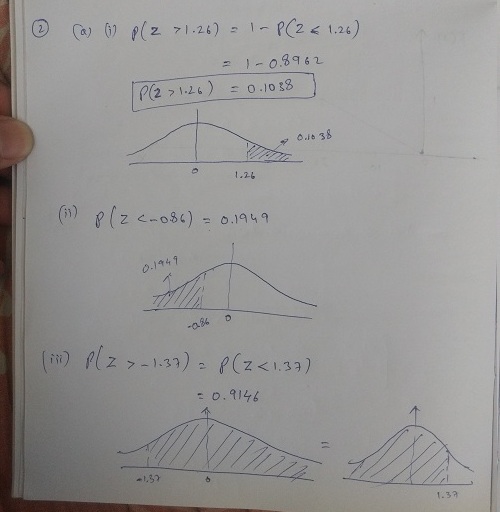 ② (a) (i) P(Z > 1.26) = 1 - P(Z ≤ 1.26)
= 1 - 0.8962
P(Z > 1.26) = 0.1038
0.1038
0 1.26
(ii) P(Z < -0.86) = 0.1949
0.1949
-0.86 0
(iii) P(Z > -1.37) = P(Z < 1.37)
= 0.9146
=
-1.37 0 1.37